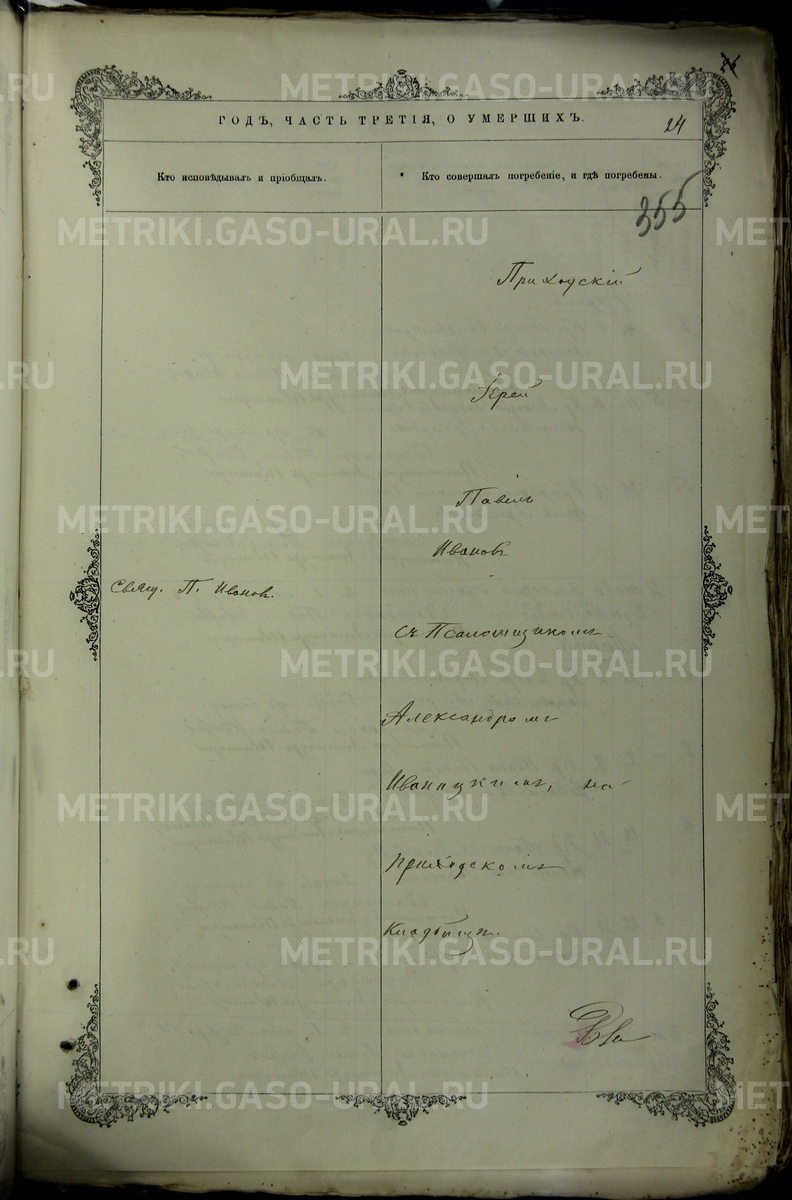 24
ГОДЪ, ЧАСТЬ ТРЕТІЯ, О УМЕРШИХЪ.
Кто исповѣдывалъ и пріобщалъ.
Кто совершалъ погребеніе, и гдѣ погребены.
355
Приходскій
Іерей
Павелъ
Ивановъ
Свящ. П. Ивановъ.
съ Псаломщикомъ
Александромъ
Иваницкимъ, на
приходскомъ
кладбищѣ.
METRIKI.GASO-URAL.RU